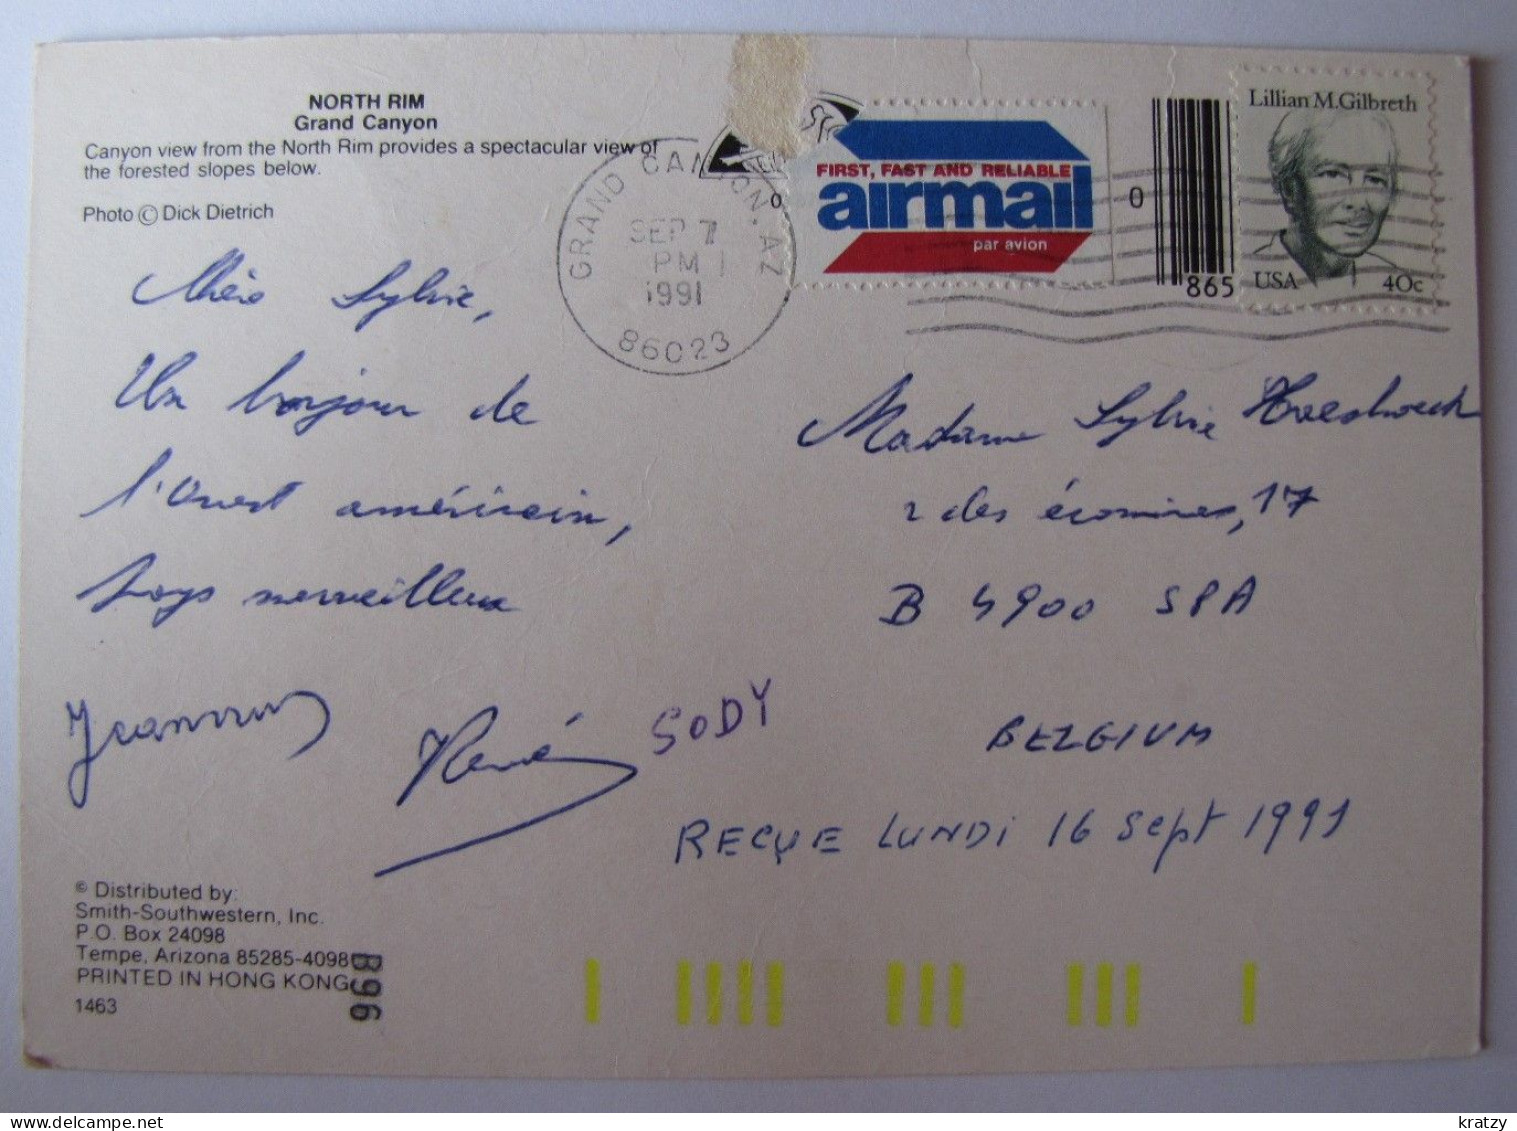 NORTH RIM
Grand Canyon
Canyon view from the North Rim provides a spectacular view of
the forested slopes below.
Photo © Dick Dietrich
GRAND CANYON, AZ
SEP 7
PM
1991
86023
FIRST, FAST AND RELIABLE
airmail
par avion
0
0
865
Lillian M. Gilbreth
USA 40c
Sylvie,
Un bonjour de
l'Ouest américain,
Pays merveilleux
René SODY
Madame Sylvie
r des écomines, 17
B 4900 SPA
BELGIUM
REÇUE LUNDI 16 Sept 1991
© Distributed by:
Smith-Southwestern, Inc.
P.O. Box 24098
Tempe, Arizona 85285-4098
PRINTED IN HONG KONG
1463
B96
kratzy